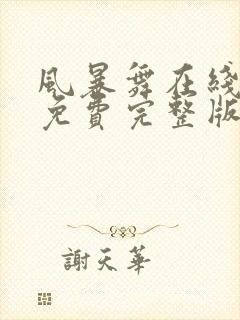 風暴舞在綫
免費完整版
謝天華